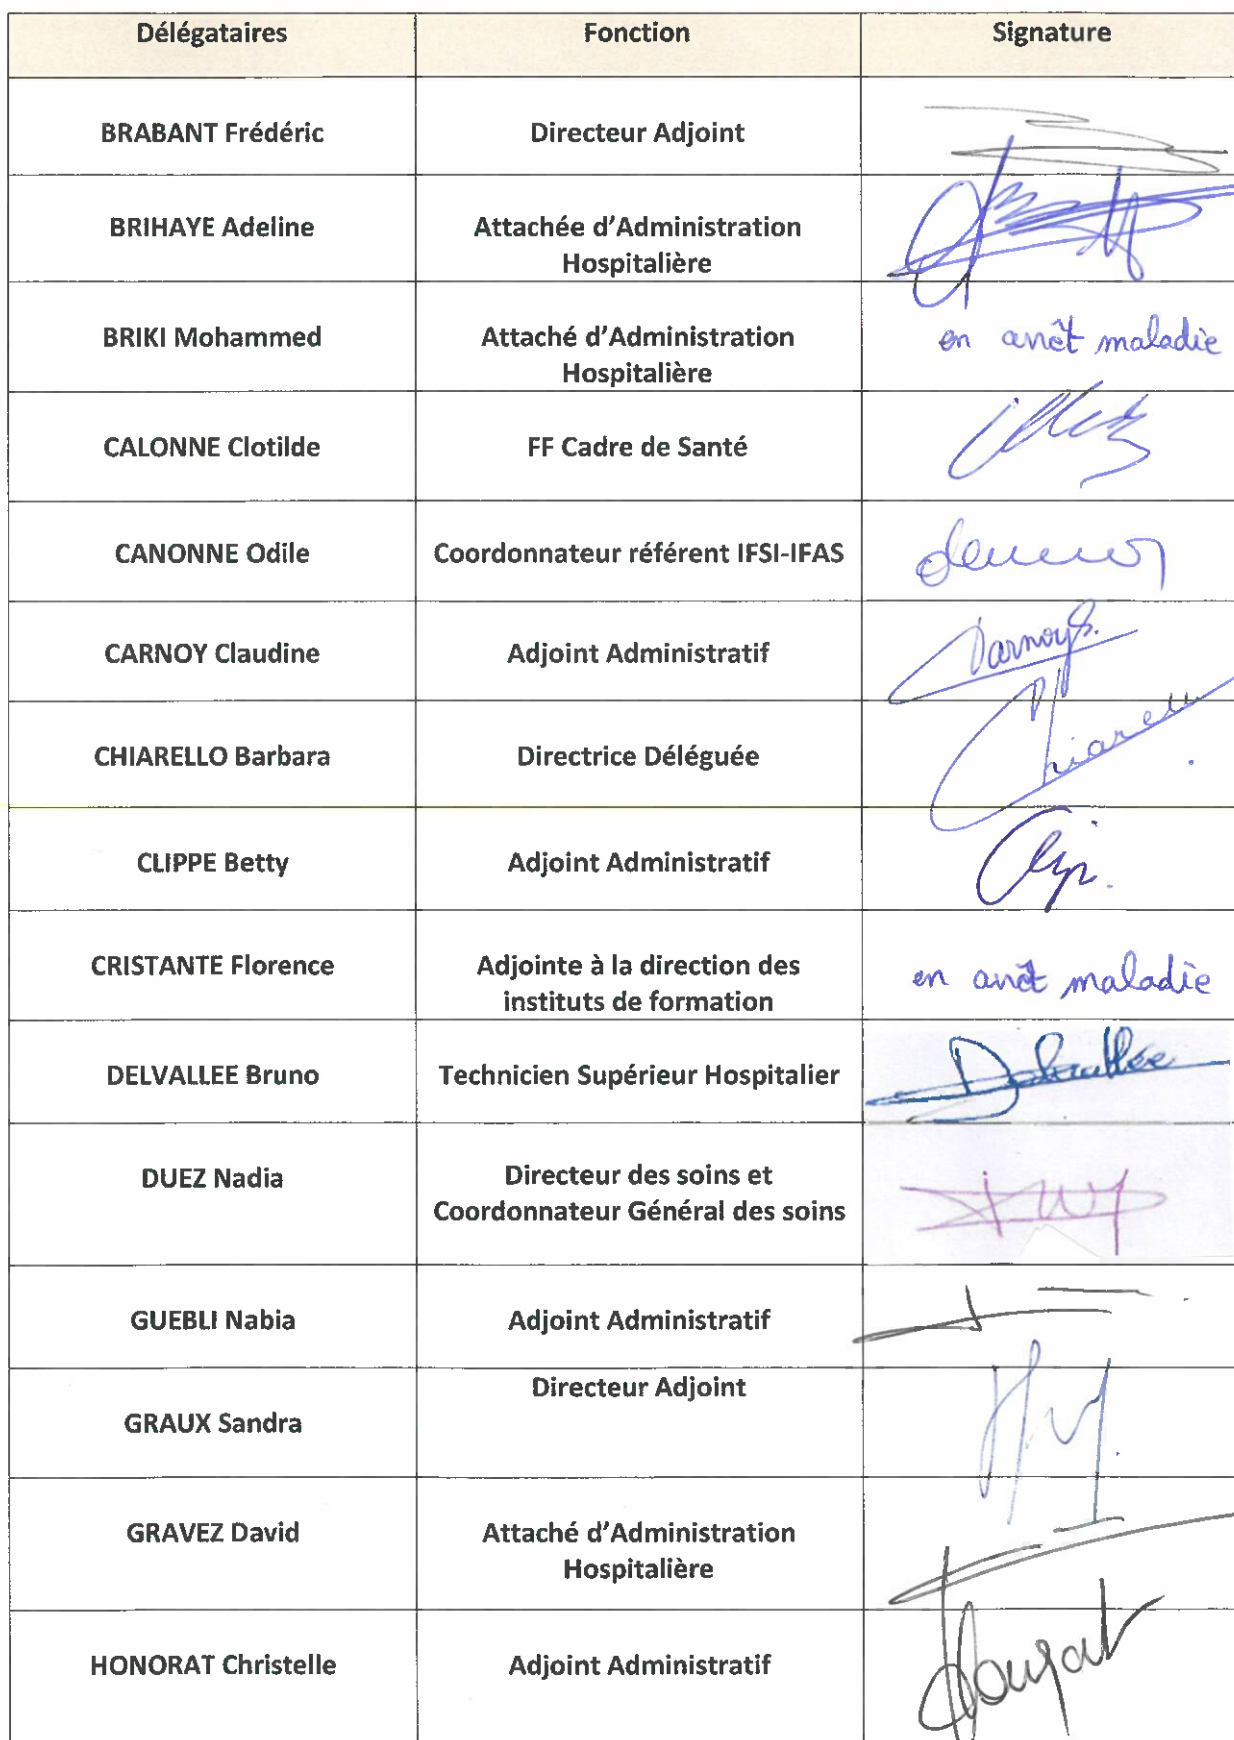 Délégataires Fonction Signature
BRABANT Frédéric Directeur Adjoint
BRIHAYE Adeline Attachée d'Administration
Hospitalière
BRIKI Mohammed Attaché d'Administration en arrêt maladie
Hospitalière
CALONNE Clotilde FF Cadre de Santé
CANONNE Odile Coordonnateur référent IFSI-IFAS
CARNOY Claudine Adjoint Administratif
CHIARELLO Barbara Directrice Déléguée
CLIPPE Betty Adjoint Administratif
CRISTANTE Florence Adjointe à la direction des en arrêt maladie
instituts de formation
DELVALLEE Bruno Technicien Supérieur Hospitalier Delvallée
DUEZ Nadia Directeur des soins et
Coordonnateur Général des soins
GUEBLI Nabia Adjoint Administratif
Directeur Adjoint
GRAUX Sandra
GRAVEZ David Attaché d'Administration
Hospitalière
HONORAT Christelle Adjoint Administratif